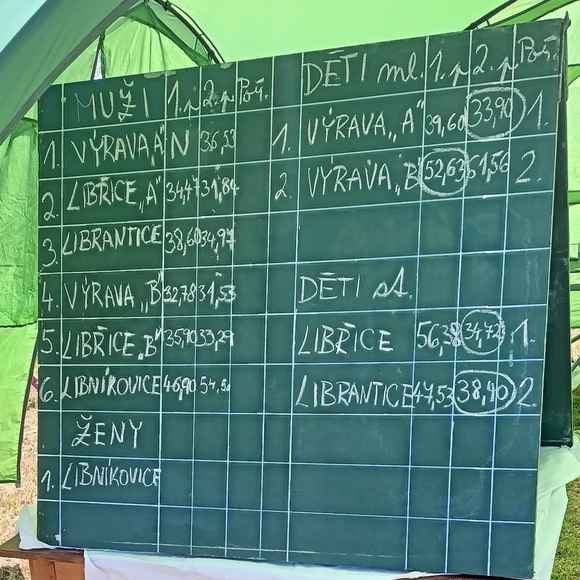 MUŽI 1.p 2.p Poř.
1. VÝRAVA „A" N 36,53
2. LIBŘICE „A" 34,47 31,84
3. LIBRANTICE 38,60 34,97
4. VÝRAVA „B" 32,78 31,53
5. LIBŘICE „B" 35,90 33,29
6. LIBNÍKOVICE 46,90
ŽENY
1. LIBNÍKOVICE
DĚTI ml. 1.p 2.p Poř.
1. VÝRAVA „A" 39,60 33,90 1.
2. VÝRAVA „B" 52,63 51,56 2.
DĚTI st.
LIBŘICE 56,38 34,72 1.
LIBRANTICE 47,53 38,40 2.